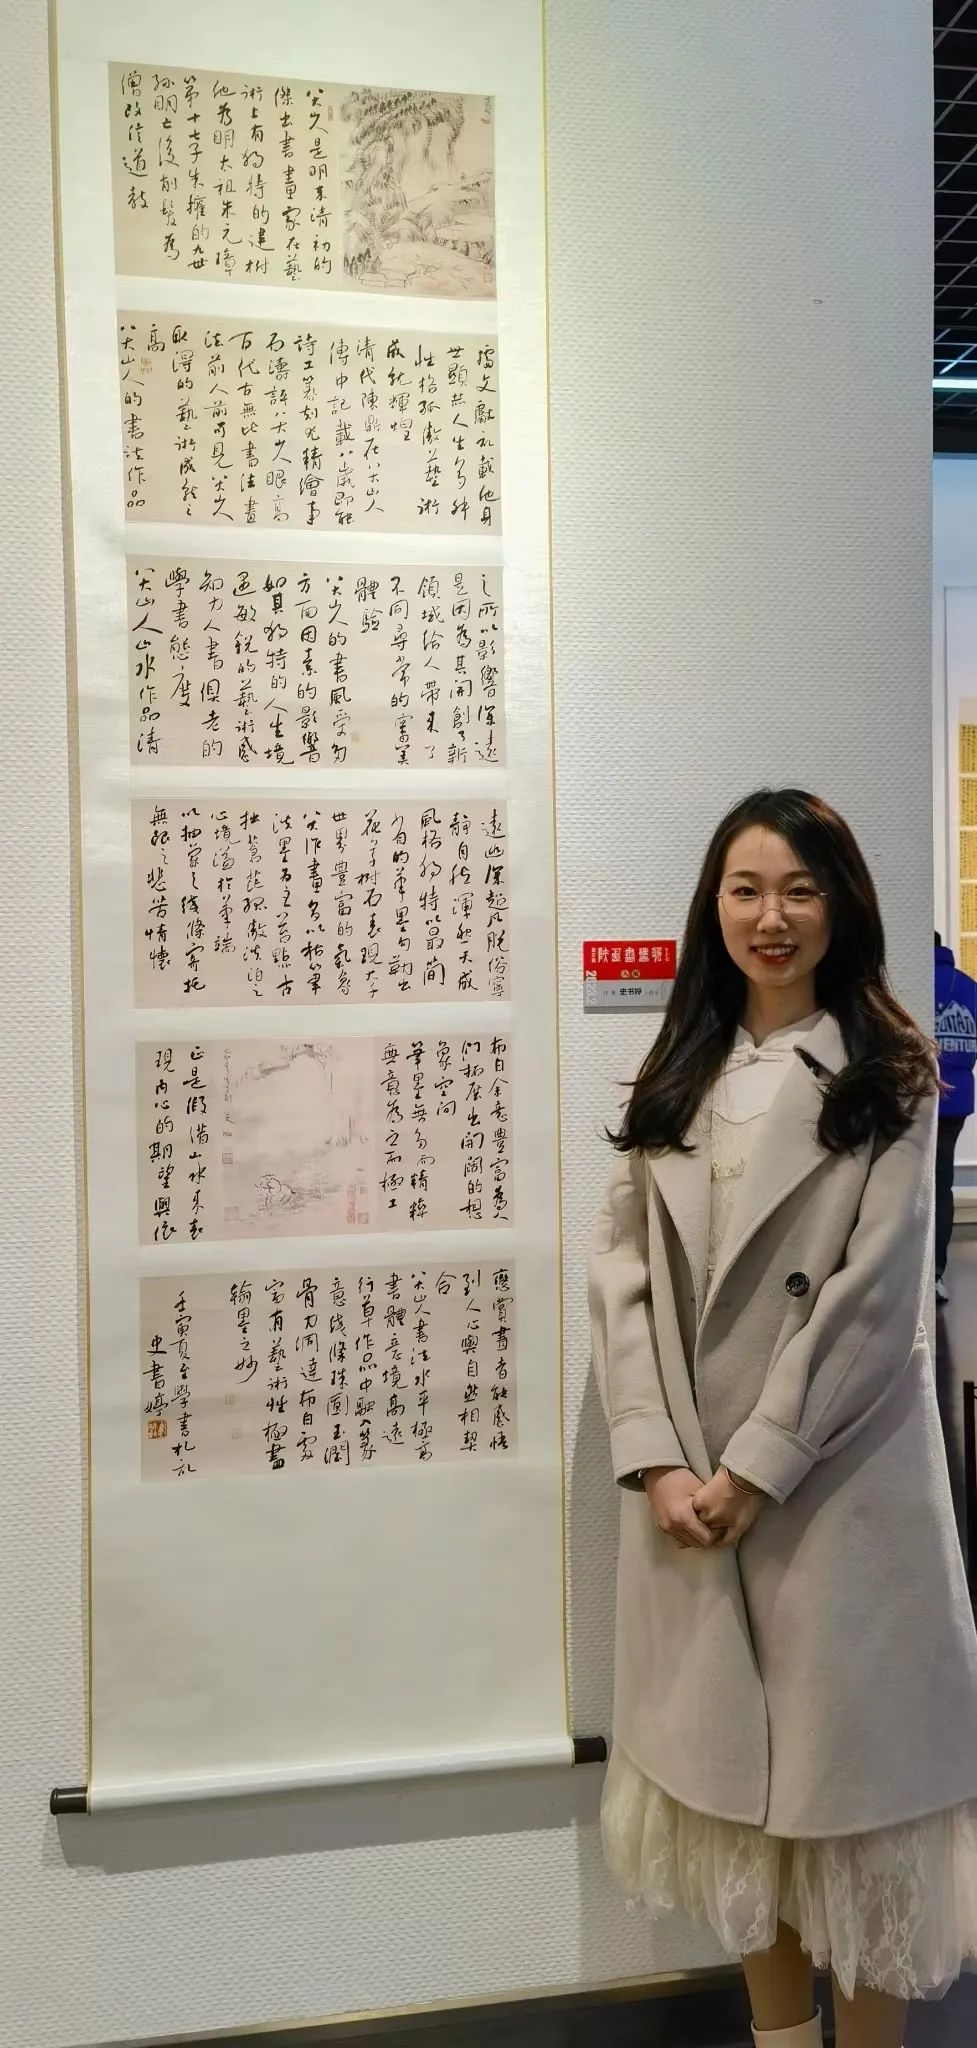 八大山人是明末清初的
傑出書畫家在藝
術上有獨特的建樹
他為明太祖朱元璋
第十七子朱權的九世
孫明亡後削髮為
僧改信道教
據文獻記載他身
世顯赫人生多舛
性格孤傲藝術
成就輝煌
清代陳鼎在八大山人
傳中記載八歲即能
詩工篆刻尤精繪事
石濤評八大山人眼高
百代古無比書法畫
法前人前可見八大山人
取得的藝術成就之
高
八大山人的書法作品
之所以影響深遠
是因為其開創了新
領域給人帶來了
不同尋常的審美
體驗
八大山人的書風受多
方面因素的影響
如其獨特的人生境
遇敏銳的藝術感
知力人書俱老的
學書態度
八大山人山水作品清
遠幽深超凡脫俗寧
靜自然渾然天成
風格獨特以最簡
少有的筆墨勾勒出
花草樹石表現大千
世界豐富的氣象
八大作畫多以枯筆
淡墨為主蒼點古
拙蒼茫孤傲淡泊之
心境溢於筆端
以抽象之線條寄托
無限之悲苦情懷
布白余意豐富為人
們拓展出開闊的想
象空間
筆墨無多而精粹
無意為之而極工
正是假借山水來表
現內心的期望與依
戀賞畫者能感悟
到人心與自然相契
合
八大山人書法水平極高
書體意境高遠
行草作品中融入篆
意線條珠圓玉潤
骨力洞達布白處
富有藝術性極盡
翰墨之妙
壬寅夏至學書札記
史書婷
2022
作者 史书婷
MOUNTAIN
ADVENTURE